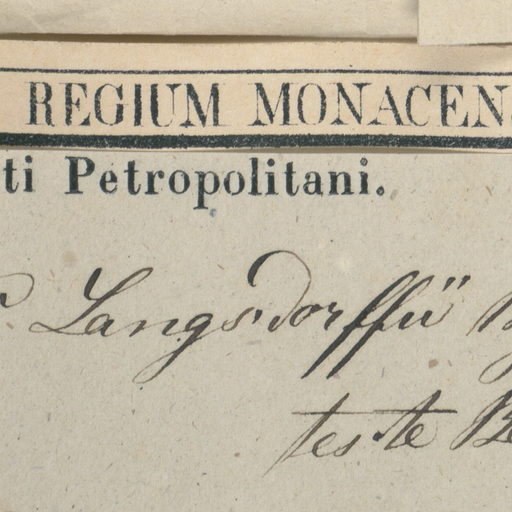 REGIUM MONACENS
ti Petropolitani.
Langsdorffii
teste